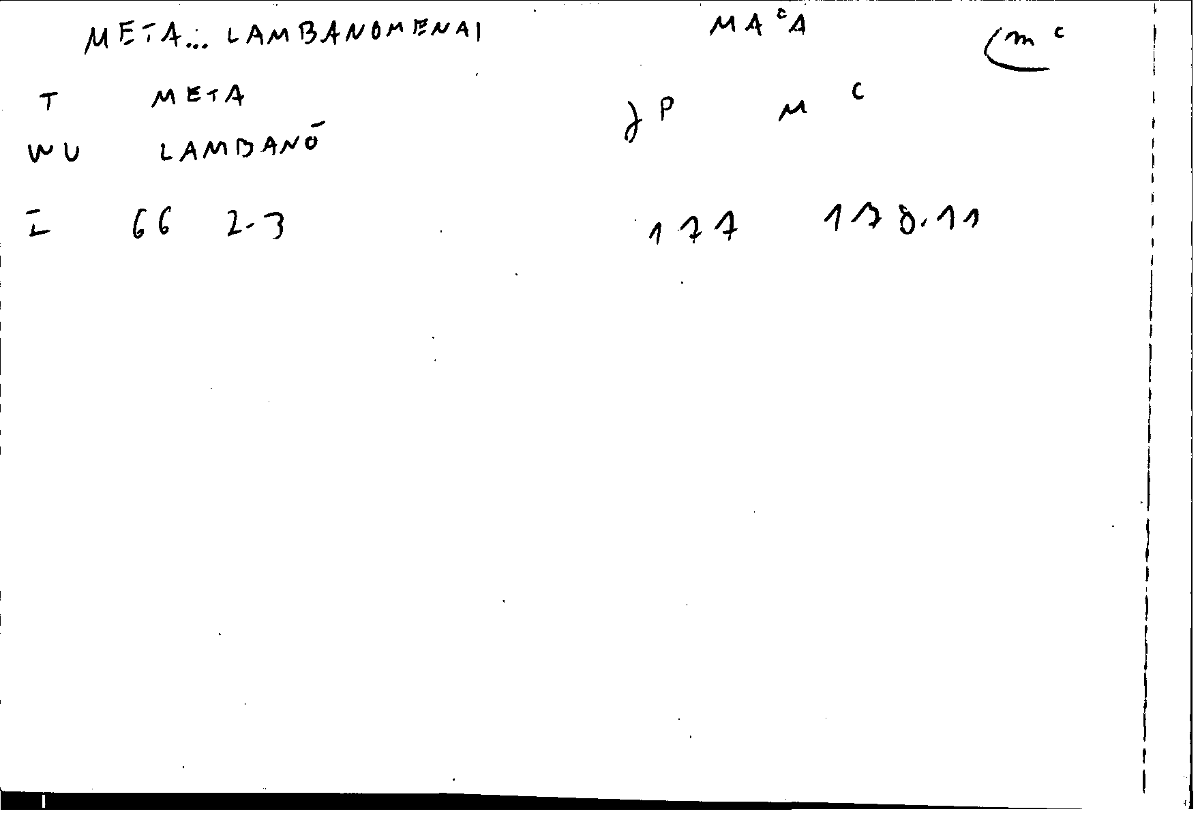 META... LAMBANOMENAI MAᶜA mᶜ
T META JP M ᶜ
WU LAMBANŌ
I 66 2-3 177 178.11